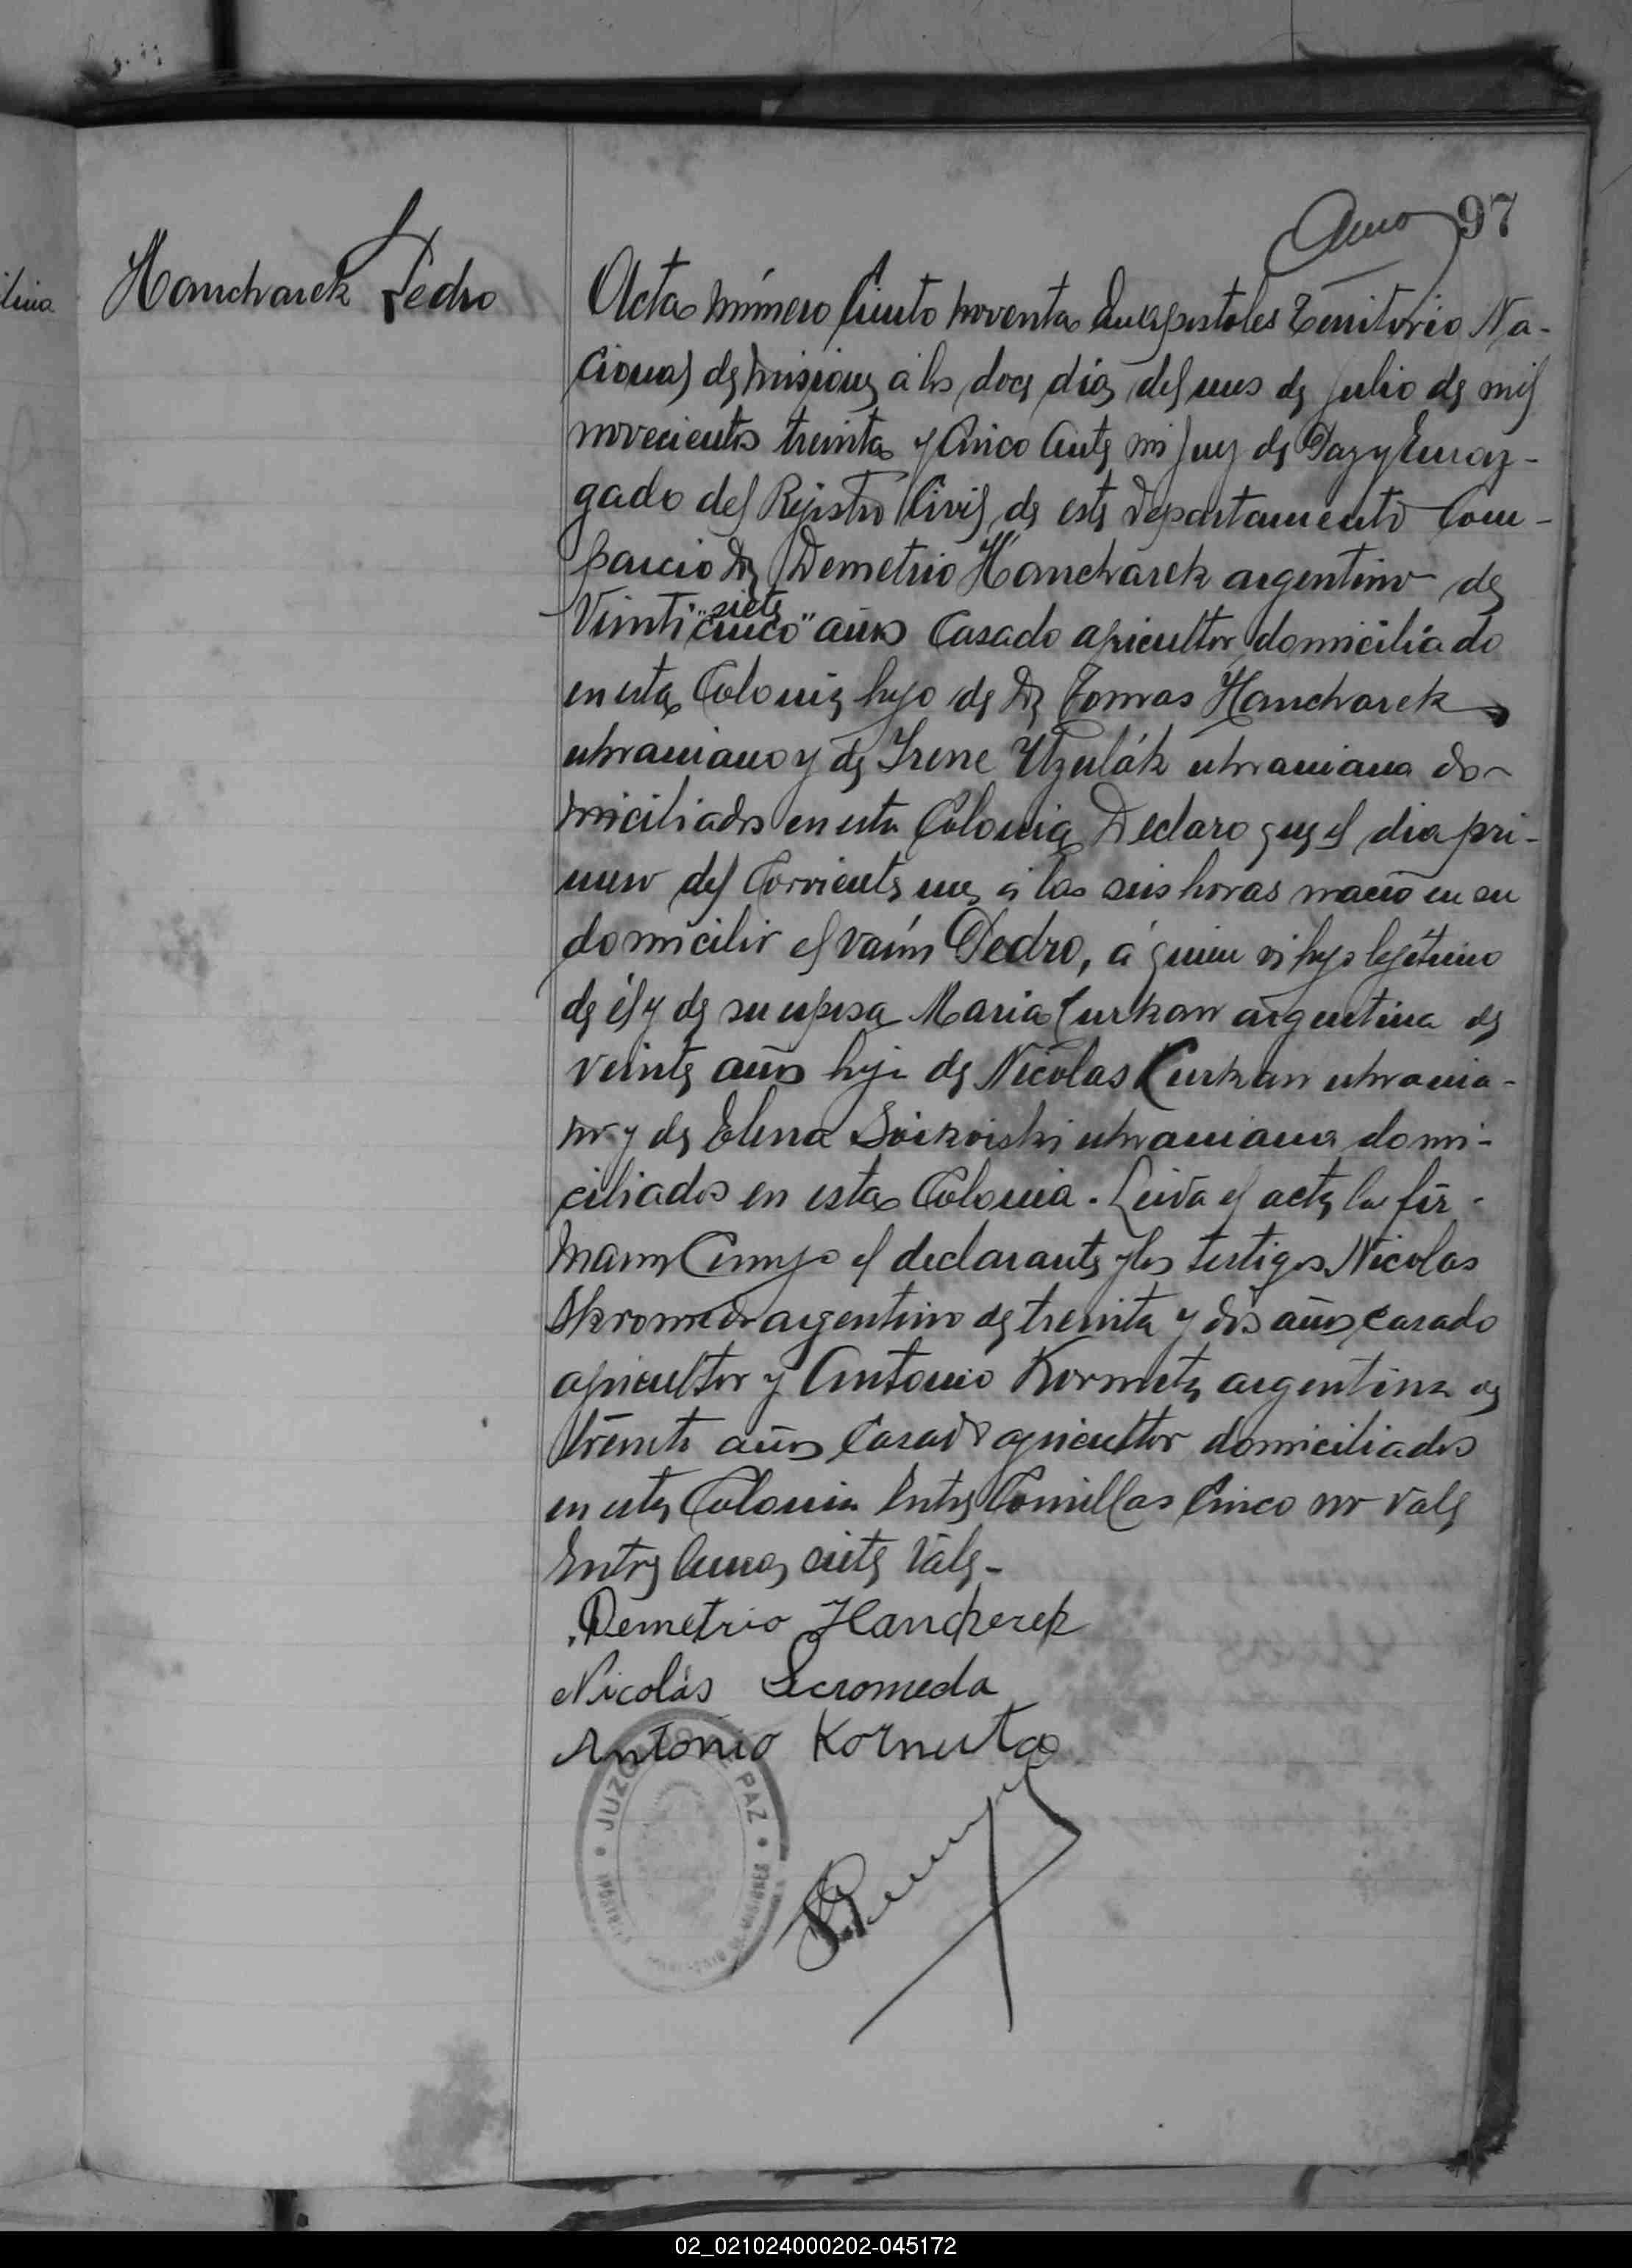 97
Hancharek Pedro
Acta número Ciento noventa En Apostoles Territorio Na-
cional de Misiones a los doce dias del mes de Julio de mil
novecientos treinta y Cinco Ante mi Juez de Paz y Encar-
gado del Rejistro Civil de este Departamento Com-
parecio Dn Demetrio Hancharek argentino de
siete
Veinti "cinco" años Casado agricultor domiciliado
en esta Colonia hijo de Dn Tomas Hancharek
ukraniano y de Irene Uzulák ukraniana do-
miciliados en esta Colonia Declaro que el dia pri-
mero del Corriente mes a las seis horas nacio en su
domicilio el varón Pedro, a quien es hijo lejitimo
de él y de su esposa Maria Curkan argentina de
veinte años hija de Nicolas Curkan ukrania-
no y de Elena Soikoiski ukraniana domi-
ciliados en esta Colonia. Leida el acta la fir-
maron Conmigo el declarante y los testigos Nicolas
Skromeda argentino de treinta y dos años casado
agricultor y Antonio Kornuta argentino de
treinta años Casado agricultor domiciliados
en esta Colonia Entre Comillas Cinco no vale
Entre lineas siete Vale-
Demetrio Hancherek
Nicolás Scromeda
Antonio Kornuta
JUZGADO DE PAZ
02_021024000202-045172